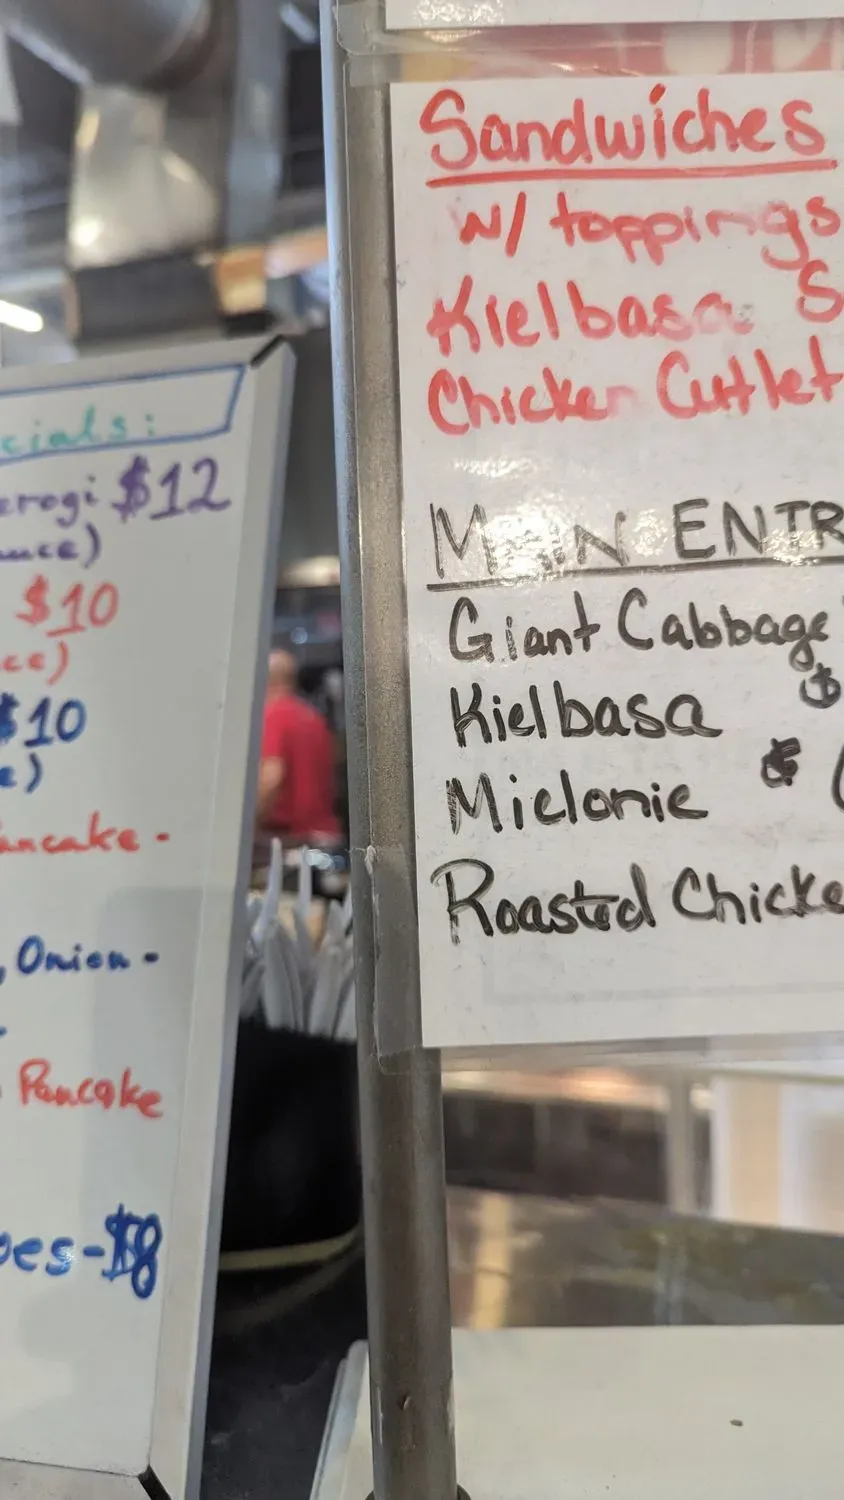 cials:
erogi $12
uce)
$10
ce)
$10
e)
ancake -
, Onion -
Pancake
oes - $8
Sandwiches
w/ toppings
Kielbasa S
Chicken Cutlet
MAIN ENTR
Giant Cabbage
Kielbasa $
Mielonie $
Roasted Chicke